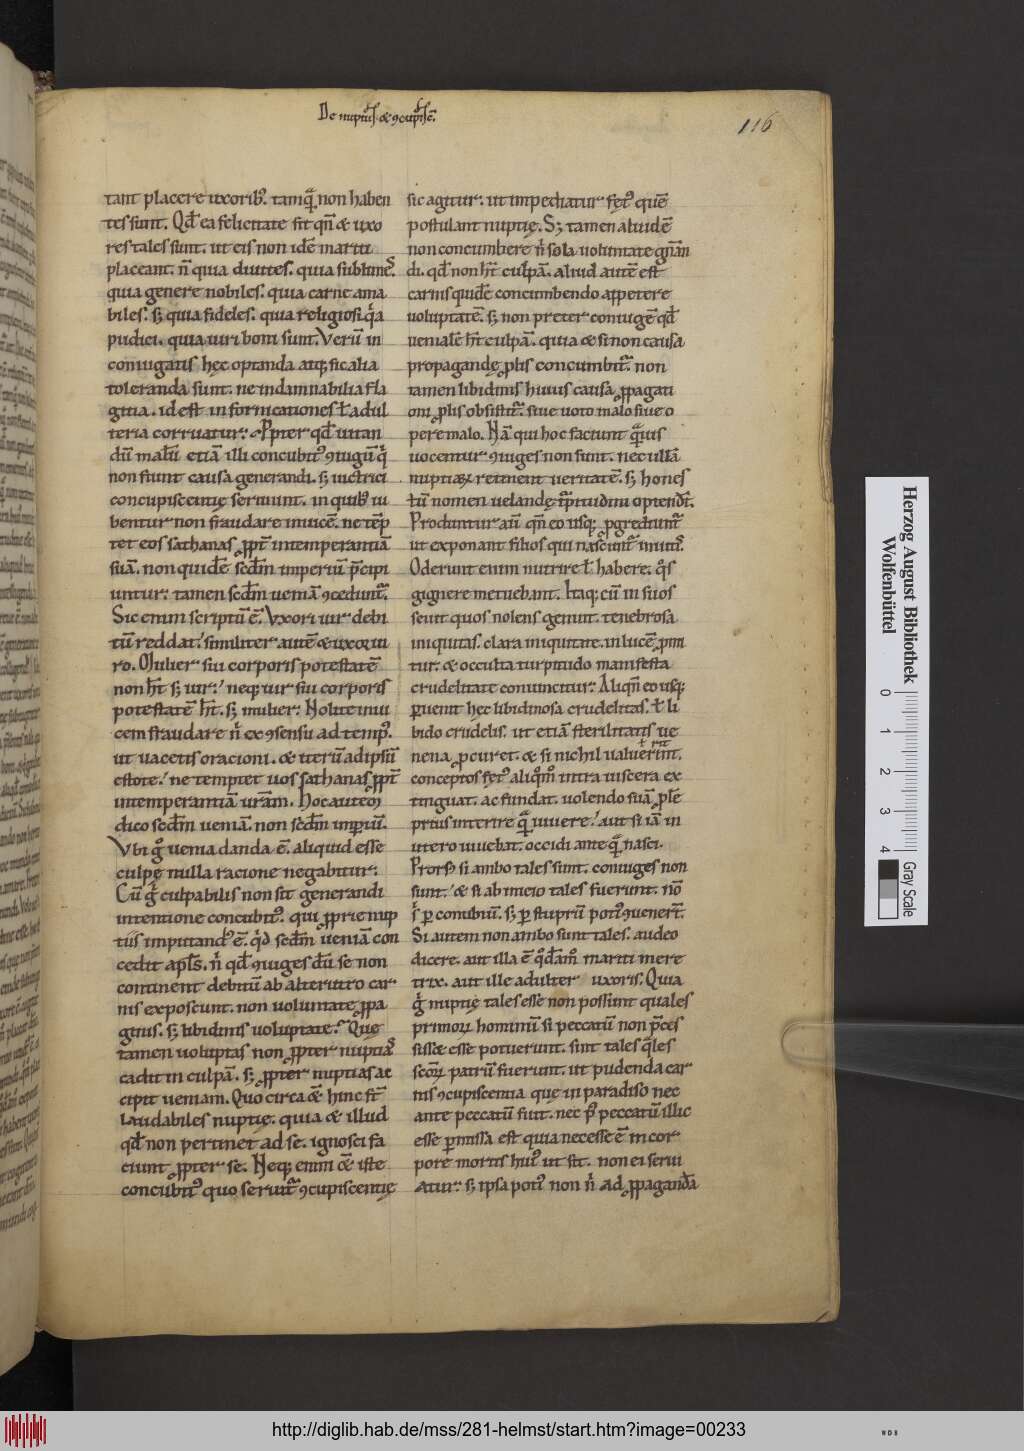 De nupt̄ & ꝯcupisc̄.
116
tant placere uxorib᷒. tamqͣ non haben
tes sunt. Qd̄ ea felicitate fit qn̄ & uxo
res tales sunt. ut eis non idē mariti
placeant. n̄ quia diuites. quia sublimes.
quia genere nobiles. quia carne ama
biles. sꝫ quia fideles. quia religiosi. qͥa
pudici. quia uiri boni sunt. Verū in
coniugatis hęc optanda atqꝫ sic alia
toleranda sunt. ne in damnabilia fla
gitia. id est in fornicationes ł adul
teria corruatur. Ppter qd̄ uitan
dū malū etiā illi concubit᷒ ꝯiugū qͥ
non fiunt causa generandi. sꝫ uictrici
concupiscentię seruiunt. in quib᷒ iu
bentur non fraudare inuicē. ne tēp
tet eos sathanas ꝓpt̄ intemperantiā
suā. non quidē scd̄m imperiū p̄cipi
untur. tamen scd̄m ueniā ꝯcedunt᷑.
Sic enim scriptū ē. Vxori uir debi
tū reddat. similiter autē & uxor ui
ro. Mulier sui corporis potestatē
non ht̄ sꝫ uir. neqꝫ uir sui corporis
potestatē ht̄. sꝫ mulier. Nolite inui
cem fraudare n̄ ex ꝯsensu ad temp᷒.
ut uacetis oracioni. & iterū ad ipsū
estote. ne temptet uos sathanas ꝓpt̄
intemperantiā urām. Hoc autem
dico scd̄m ueniā. non scd̄m imꝑiū.
Vbi gͦ uenia danda ē. aliquid esse
culpę nulla racione negabitur.
Cū gͥ culpabilis non sit generandi
intentione concubit᷒. qui ꝓprie nup
tiis imputand᷒ ē. qͥd scd̄m ueniam con
cedit apl̄s. n̄ qd̄ ꝯiuges dū se non
continent debitū ab alterutro car
nis exposcunt. non uoluntate ꝓpa
ginis. sꝫ libidinis uoluptate. Quę
tamen uoluptas non ꝓpter nuptias
cadit in culpā. sꝫ ꝓpter nuptias ac
cipit ueniam. Quo circa & hinc st̄
laudabiles nuptię. quia & illud
qd̄ non pertinet ad se. ignosci fa
ciunt ꝓpter se. Neqꝫ enim & iste
concubit᷒ quo seruit᷑ ꝯcupiscentię
sic agitur. ut impediatur fęt᷒ quē
postulant nuptię. Sꝫ tamen aliud ē
non concumbere n̄ sola uoluntate gn̄an
di. qd̄ non ht̄ culpā. aliud autē est
carnis quidē concumbendo appetere
uoluptatē. sꝫ non preter coniugē qd̄
uenialē ht̄ culpā. quia & si non causa
propagandę ꝓlis concumbit᷑. non
tamen libidinis huius causa ꝓpagati
oni ꝓlis obsistit᷑. siue uoto malo siue o
pere malo. Nā qui hoc faciunt qͣuis
uocentur ꝯiuges non sunt. nec ullā
nuptiaꝝ retinent ueritatē. sꝫ hones
tū nomen uelandę turpitudini optendūt.
Produntur aū qn̄ eo usqꝫ ꝓgrediunt᷑
ut exponant filios qui nascunt᷑ inuitis.
Oderunt enim nutrire ł habere. qͦs
gignere metuebant. Itaqꝫ cū in suos
seuit quos nolens genuit. tenebrosa
iniquitas. clara iniquitate. in lucē ꝓmi
tur. & occulta turpitudo manifesta
crudelitate conuincitur. Aliqn̄ eo usqꝫ
ꝑuenit hęc libidinosa crudelitas. ł li
bido crudelis. ut etiā sterilitatis ue
nena ꝓcuret. & si nichil ualuerint. ł rit
conceptos fęt᷒ aliqͦ mͦ intra uiscera ex
tinguat. ac fundat. uolendo suā ꝓlē
prius interire qͣ uiuere. aut si iā in
utero uiuebat. occidi ante qͣ nasci.
Prors᷒ si ambo tales sunt. coniuges non
sunt. & si ab inicio tales fuerunt. nō
sͥ ꝑ conubiū. sꝫ ꝑ stuprū poti᷒ ꝯuenert̄.
Si autem non ambo sunt tales. audeo
dicere. aut illa ē qͦdām mͦ mariti mere
trix. aut ille adulter uxoris. Quia
gͥ nuptię tales esse non possunt quales
primoꝝ hominū si peccatū non p̄ces
sisset esse potuerunt. sint tales qͣles
scōꝝ patrū fuerunt. ut pudenda car
nis ꝯcupiscentia que in paradiso nec
ante peccatū fuit. nec p᷒ peccatū illic
esse ꝑmissa est quia necesse ē in cor
pore mortis hui᷒ ut sit. non ei serui
atur. sꝫ ipsa poti᷒ non n̄ ad ꝓpaganda
Herzog August Bibliothek
Wolfenbüttel
0 1 2 3 4
Gray Scale
http://diglib.hab.de/mss/281-helmst/start.htm?image=00233